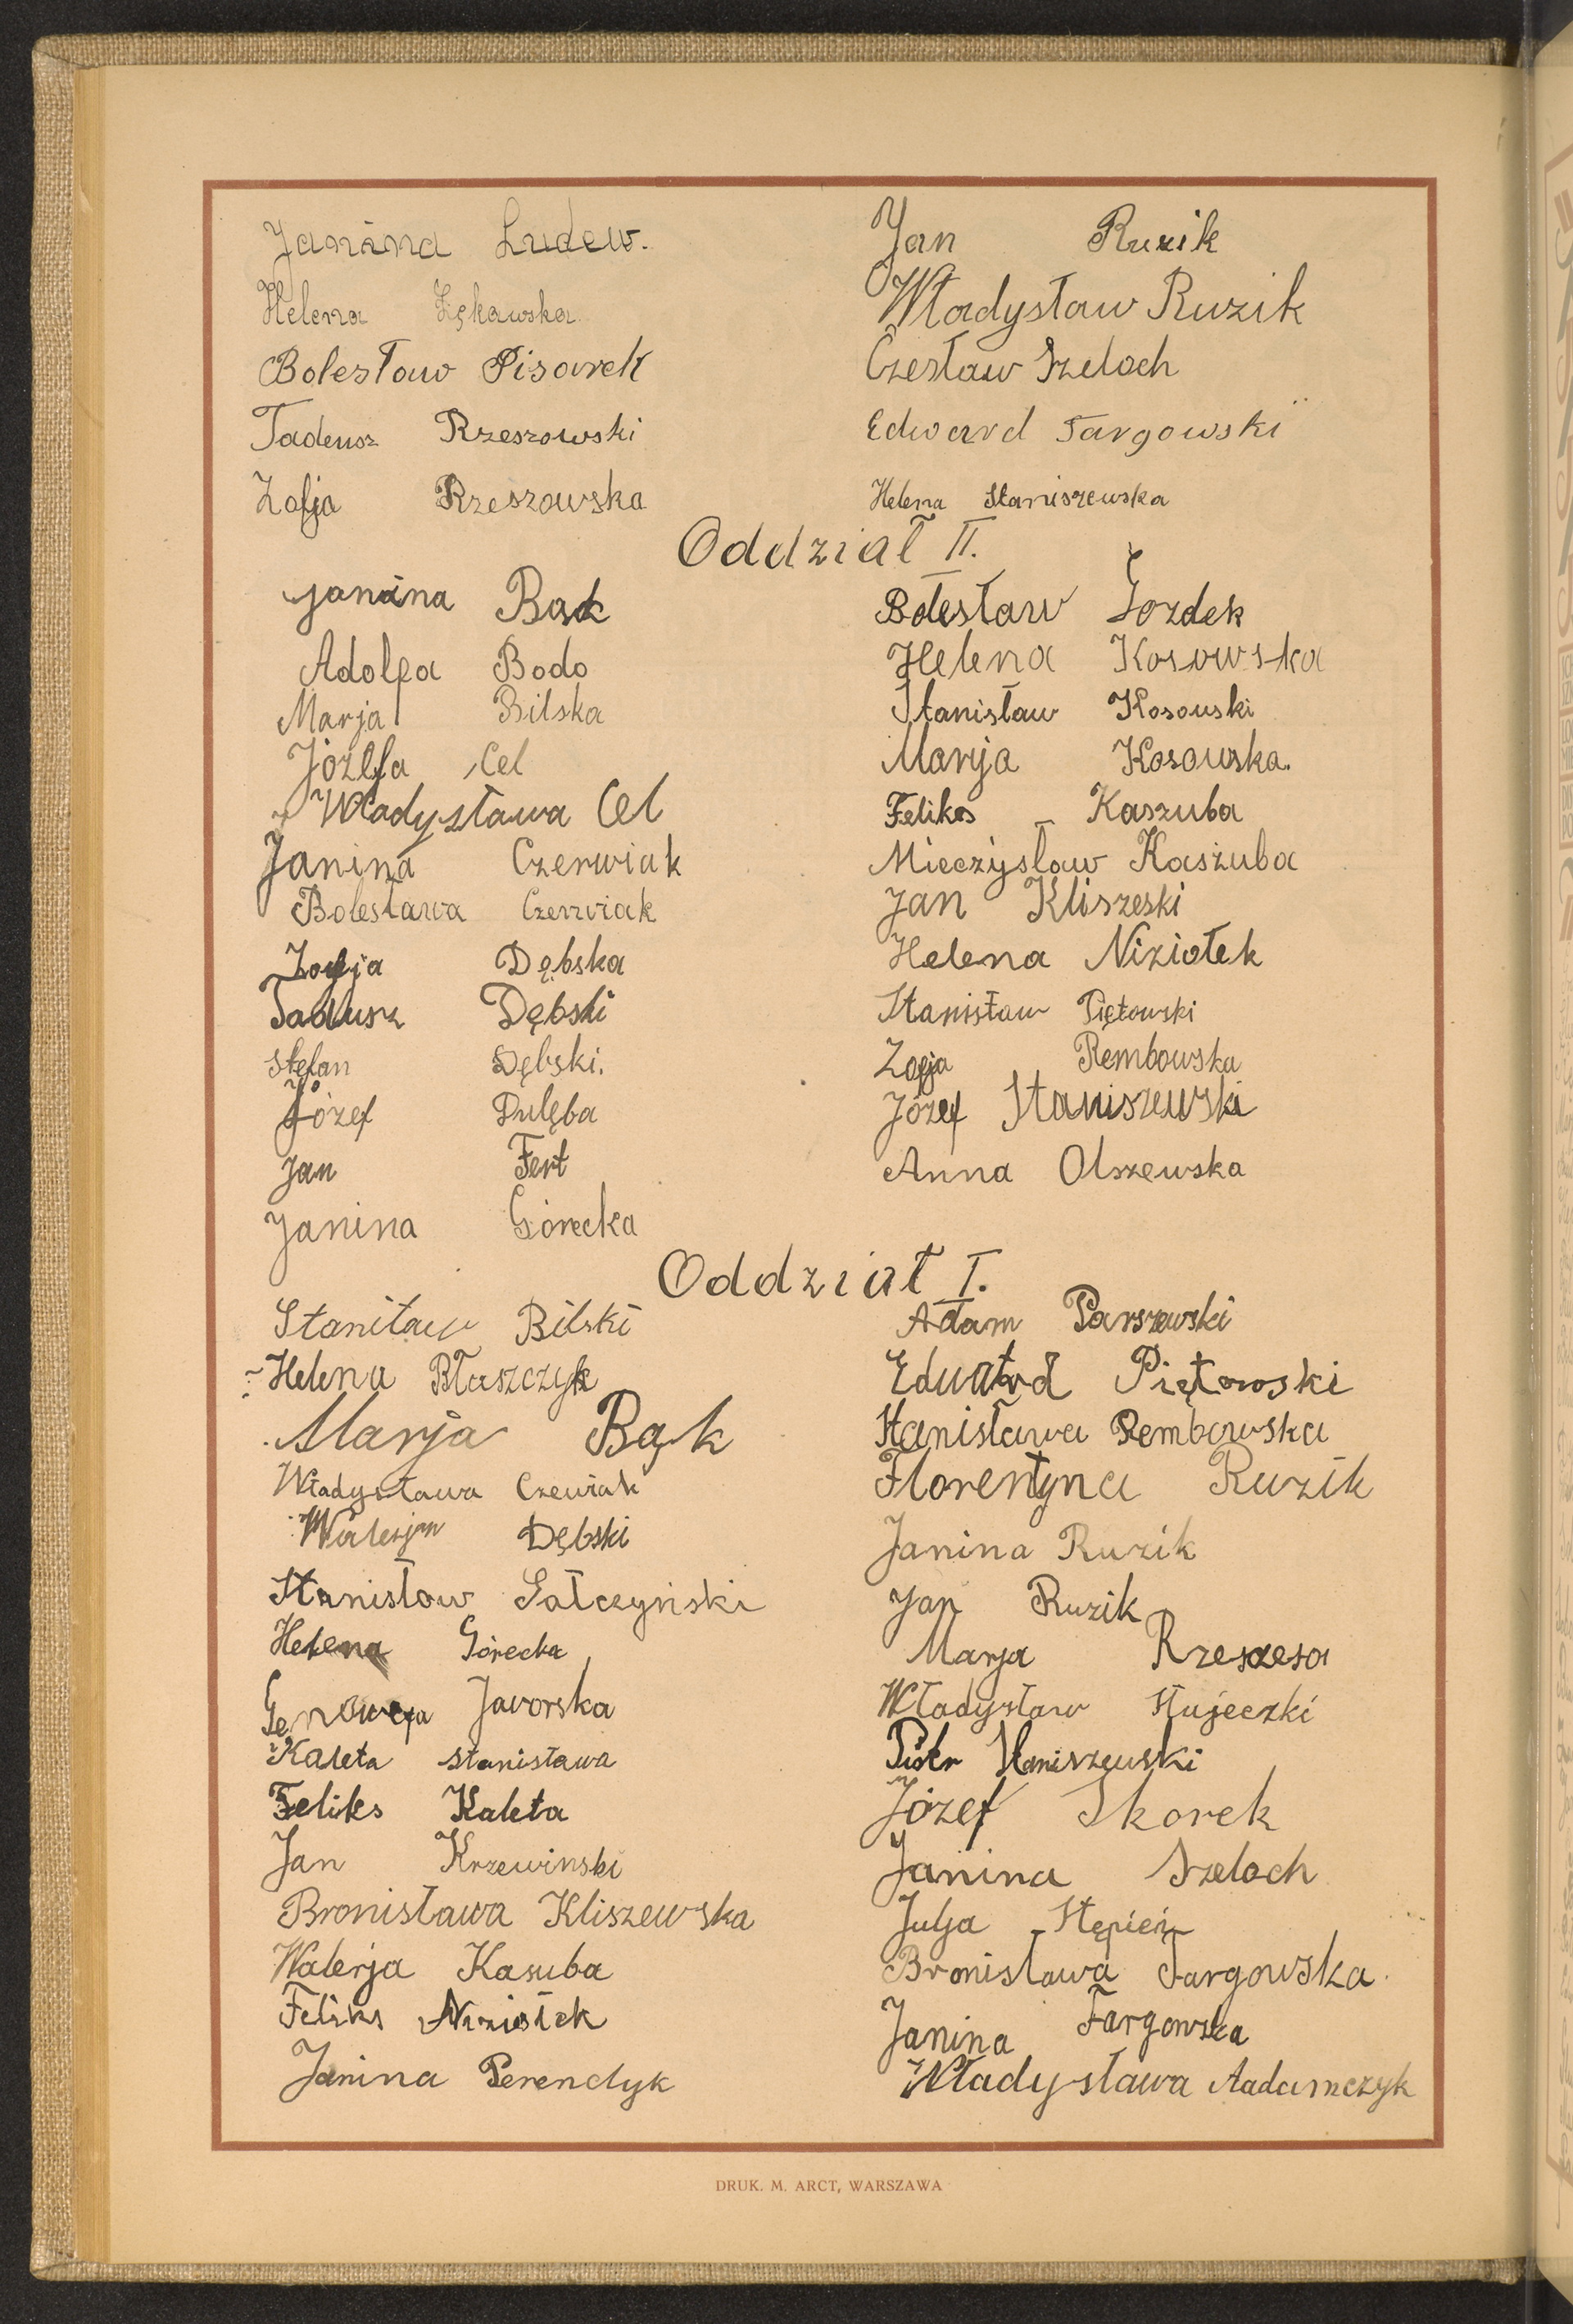 Janina Ludew.
Helena Łękawska
Bolesław Pisarek
Tadeusz Rzeszowski
Zofja Rzeszowska
Jan Ruzik
Władysław Ruzik
Czesław Szeloch
Edward Targowski
Helena Staniszewska
Oddział II.
Janina Bąk
Adolfa Bodo
Marja Bilska
Józefa Cel
Władysława Cel
Janina Czerwiak
Bolesława Czerwiak
Zofja Dębska
Tadusz Dębski
Stefan Dębski.
Józef Dulęba
Jan Fert
Janina Górecka
Bolesław Gozdek
Helena Kosowska
Stanisław Kosowski
Marija Kosowska.
Feliks Kaszuba
Mieczysław Kaszuba
Jan Kliszeski
Helena Niziołek
Stanisław Piętowski
Zofja Rembowska
Józef Staniszewski
Anna Olszewska
Oddział I.
Stanitaw Bilski
Helena Błaszczyk
Marja Bąk
Władysława Czewiak
Walerjan Dębski
Stanisław Gałczyński
Helena Górecka
Genowefa Javorska
Kaleta Stanisława
Feliks Kaleta
Jan Krzewinski
Bronisława Kliszewska
Walerja Kasuba
Feliks Niziołek
Janina Perendyk
Adam Parszewski
Edward Piętowski
Stanisława Rembowska
Florentyna Ruzik
Janina Ruzik
Jan Ruzik
Marja
Władysław Stujeczki
Piotr Staniszewski
Józef Skorek
Janina Szeloch
Julja Stępień
Bronisława Targowska.
Janina Targowska
Władysława Aadamczyk
DRUK. M. ARCT, WARSZAWA